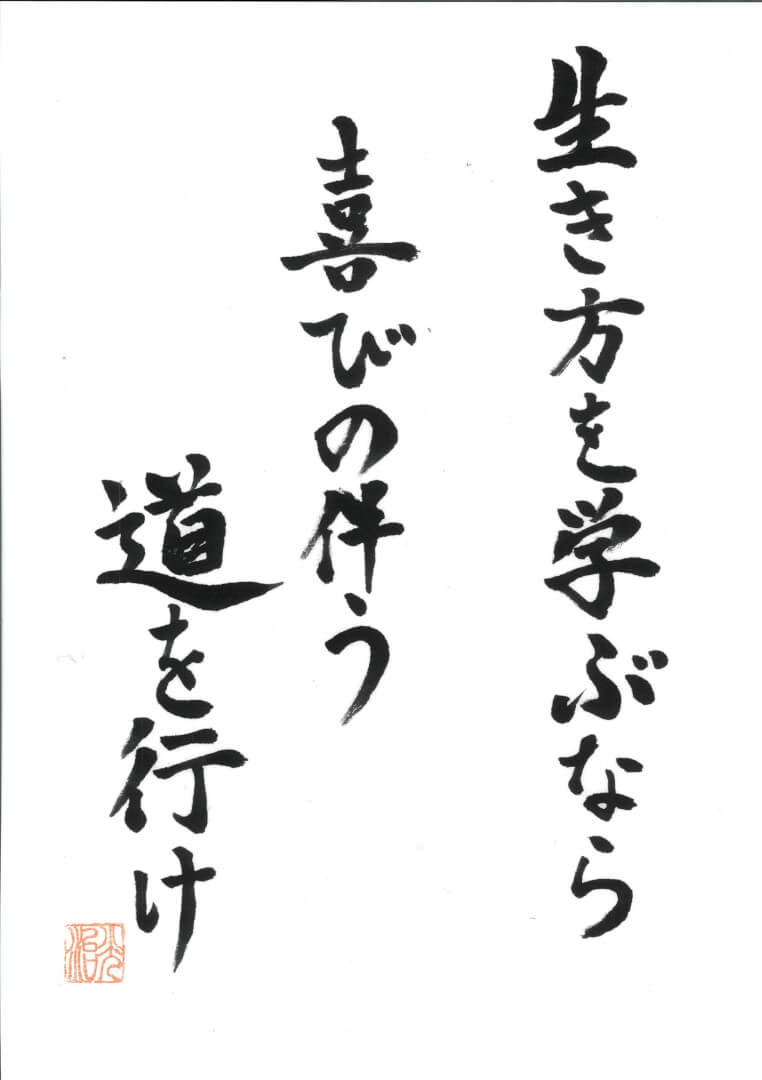 生き方を学ぶなら
喜びの伴う
道を行け